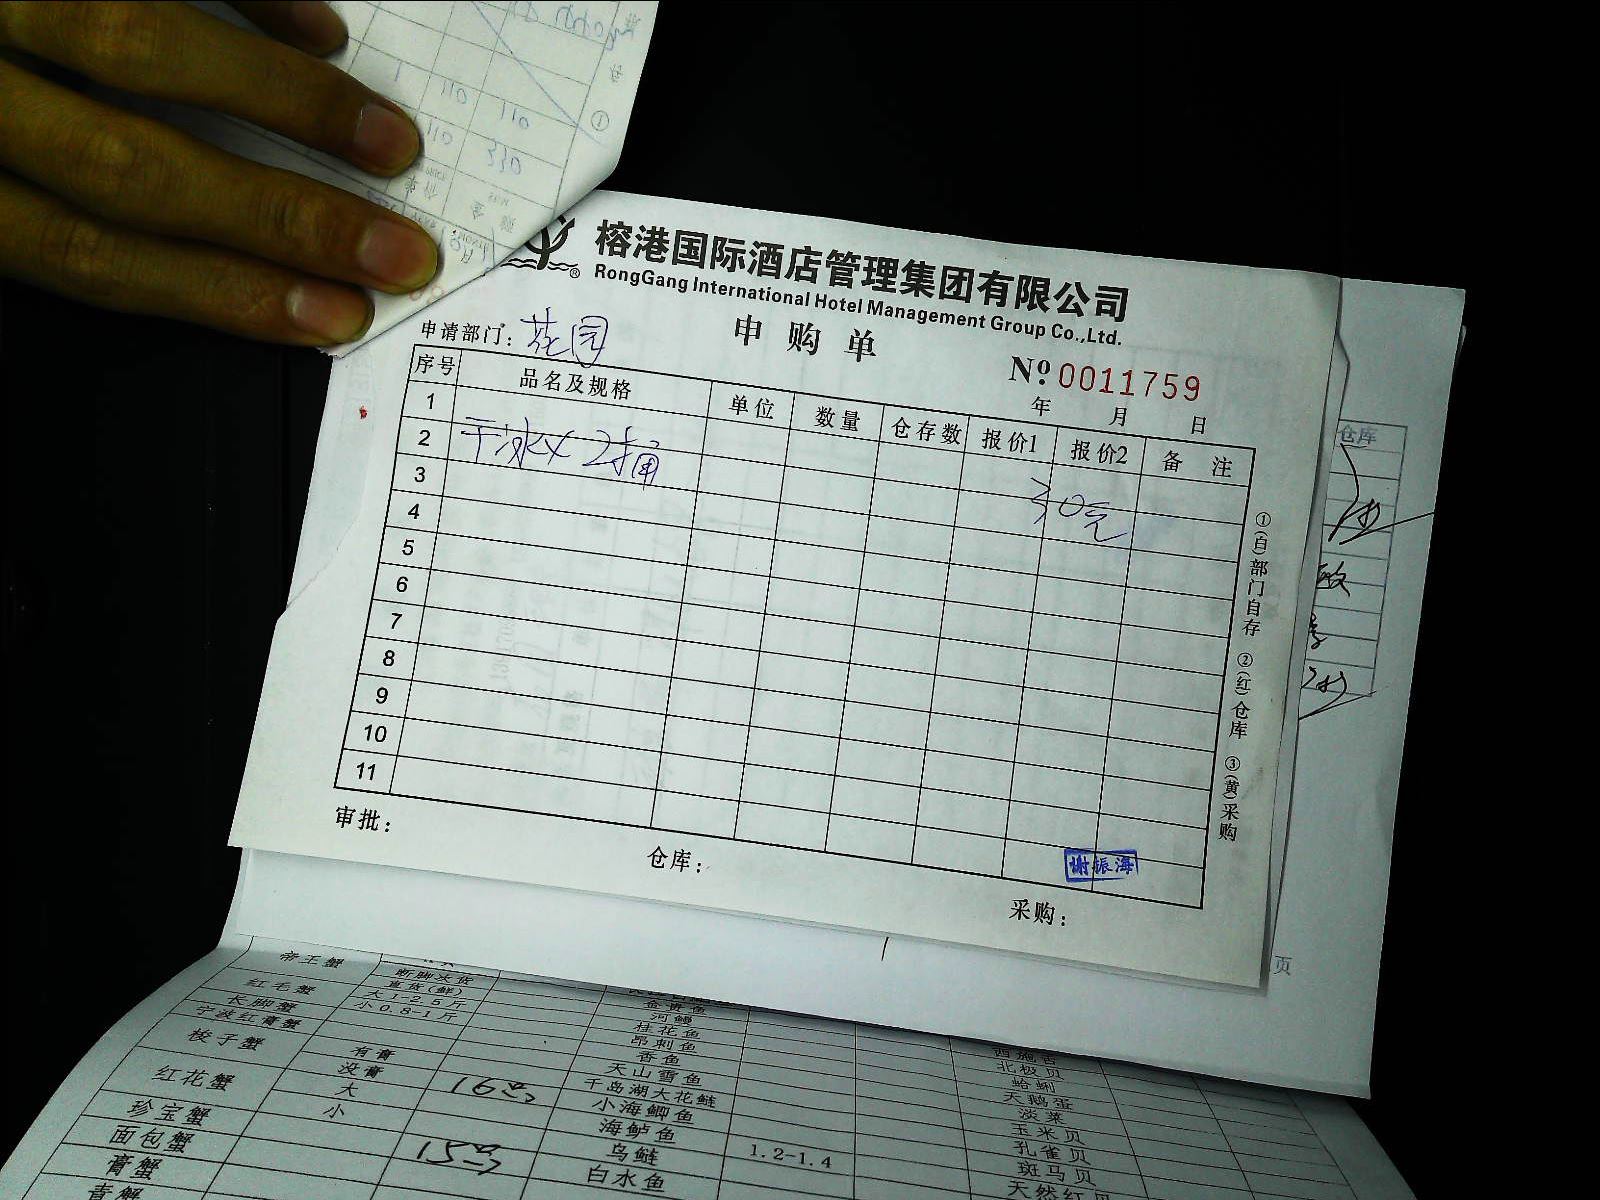 330
110
110
110
1
①
榕港国际酒店管理集团有限公司
RongGang International Hotel Management Group Co.,Ltd.
®
申购单
申请部门：花园
№ 0011759
年 月 日
序号 品名及规格 单位 数量 仓存数 报价1 报价2 备注
1
2 干冰x 2捅 30元
3
4
5
6
7
8
9
10
11
①(白)部门自存 ②(红)仓库 ③(黄)采购
谢振海
审批： 仓库： 采购：
仓库
页
帝王蟹 断脚火货
红毛蟹 直货(鲜) 金贵鱼
长脚蟹 大1-2.5斤 河鳗
宁波红膏蟹 小0.8-1斤 桂花鱼 西施舌
梭子蟹 有膏 昂刺鱼 北极贝
没膏 香鱼 蛤蜊
红花蟹 大 天山雪鱼 天鹅蛋
小 千岛湖大花鲢 淡菜
珍宝蟹 小海鲫鱼 玉米贝
面包蟹 海鲈鱼 孔雀贝
膏蟹 乌鲢 1.2-1.4 斑马贝
青蟹 白水鱼